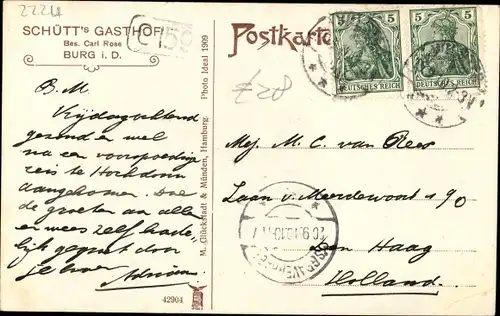 2224
SCHÜTT'S GASTHOF
Bes. Carl Rose
BURG i. D.
Postkarte
5 5
5 5
DEUTSCHES REICH
DEUTSCHES REICH
£28
B. M.
Vrijdagochtend
gezond en wel
na een voorspoedige
reis te Hochdonn
aangekomen. Doe
de groeten aan allen
en wees zelf harte
lijk gegroet door
je broer
M. Glückstadt & Münden, Hamburg.
Photo Ideal 1909
Mej. M. C. van Rees
Laan v. Meerdervoort 90
Den Haag
Holland.
'S GRAVENHAGE
42904